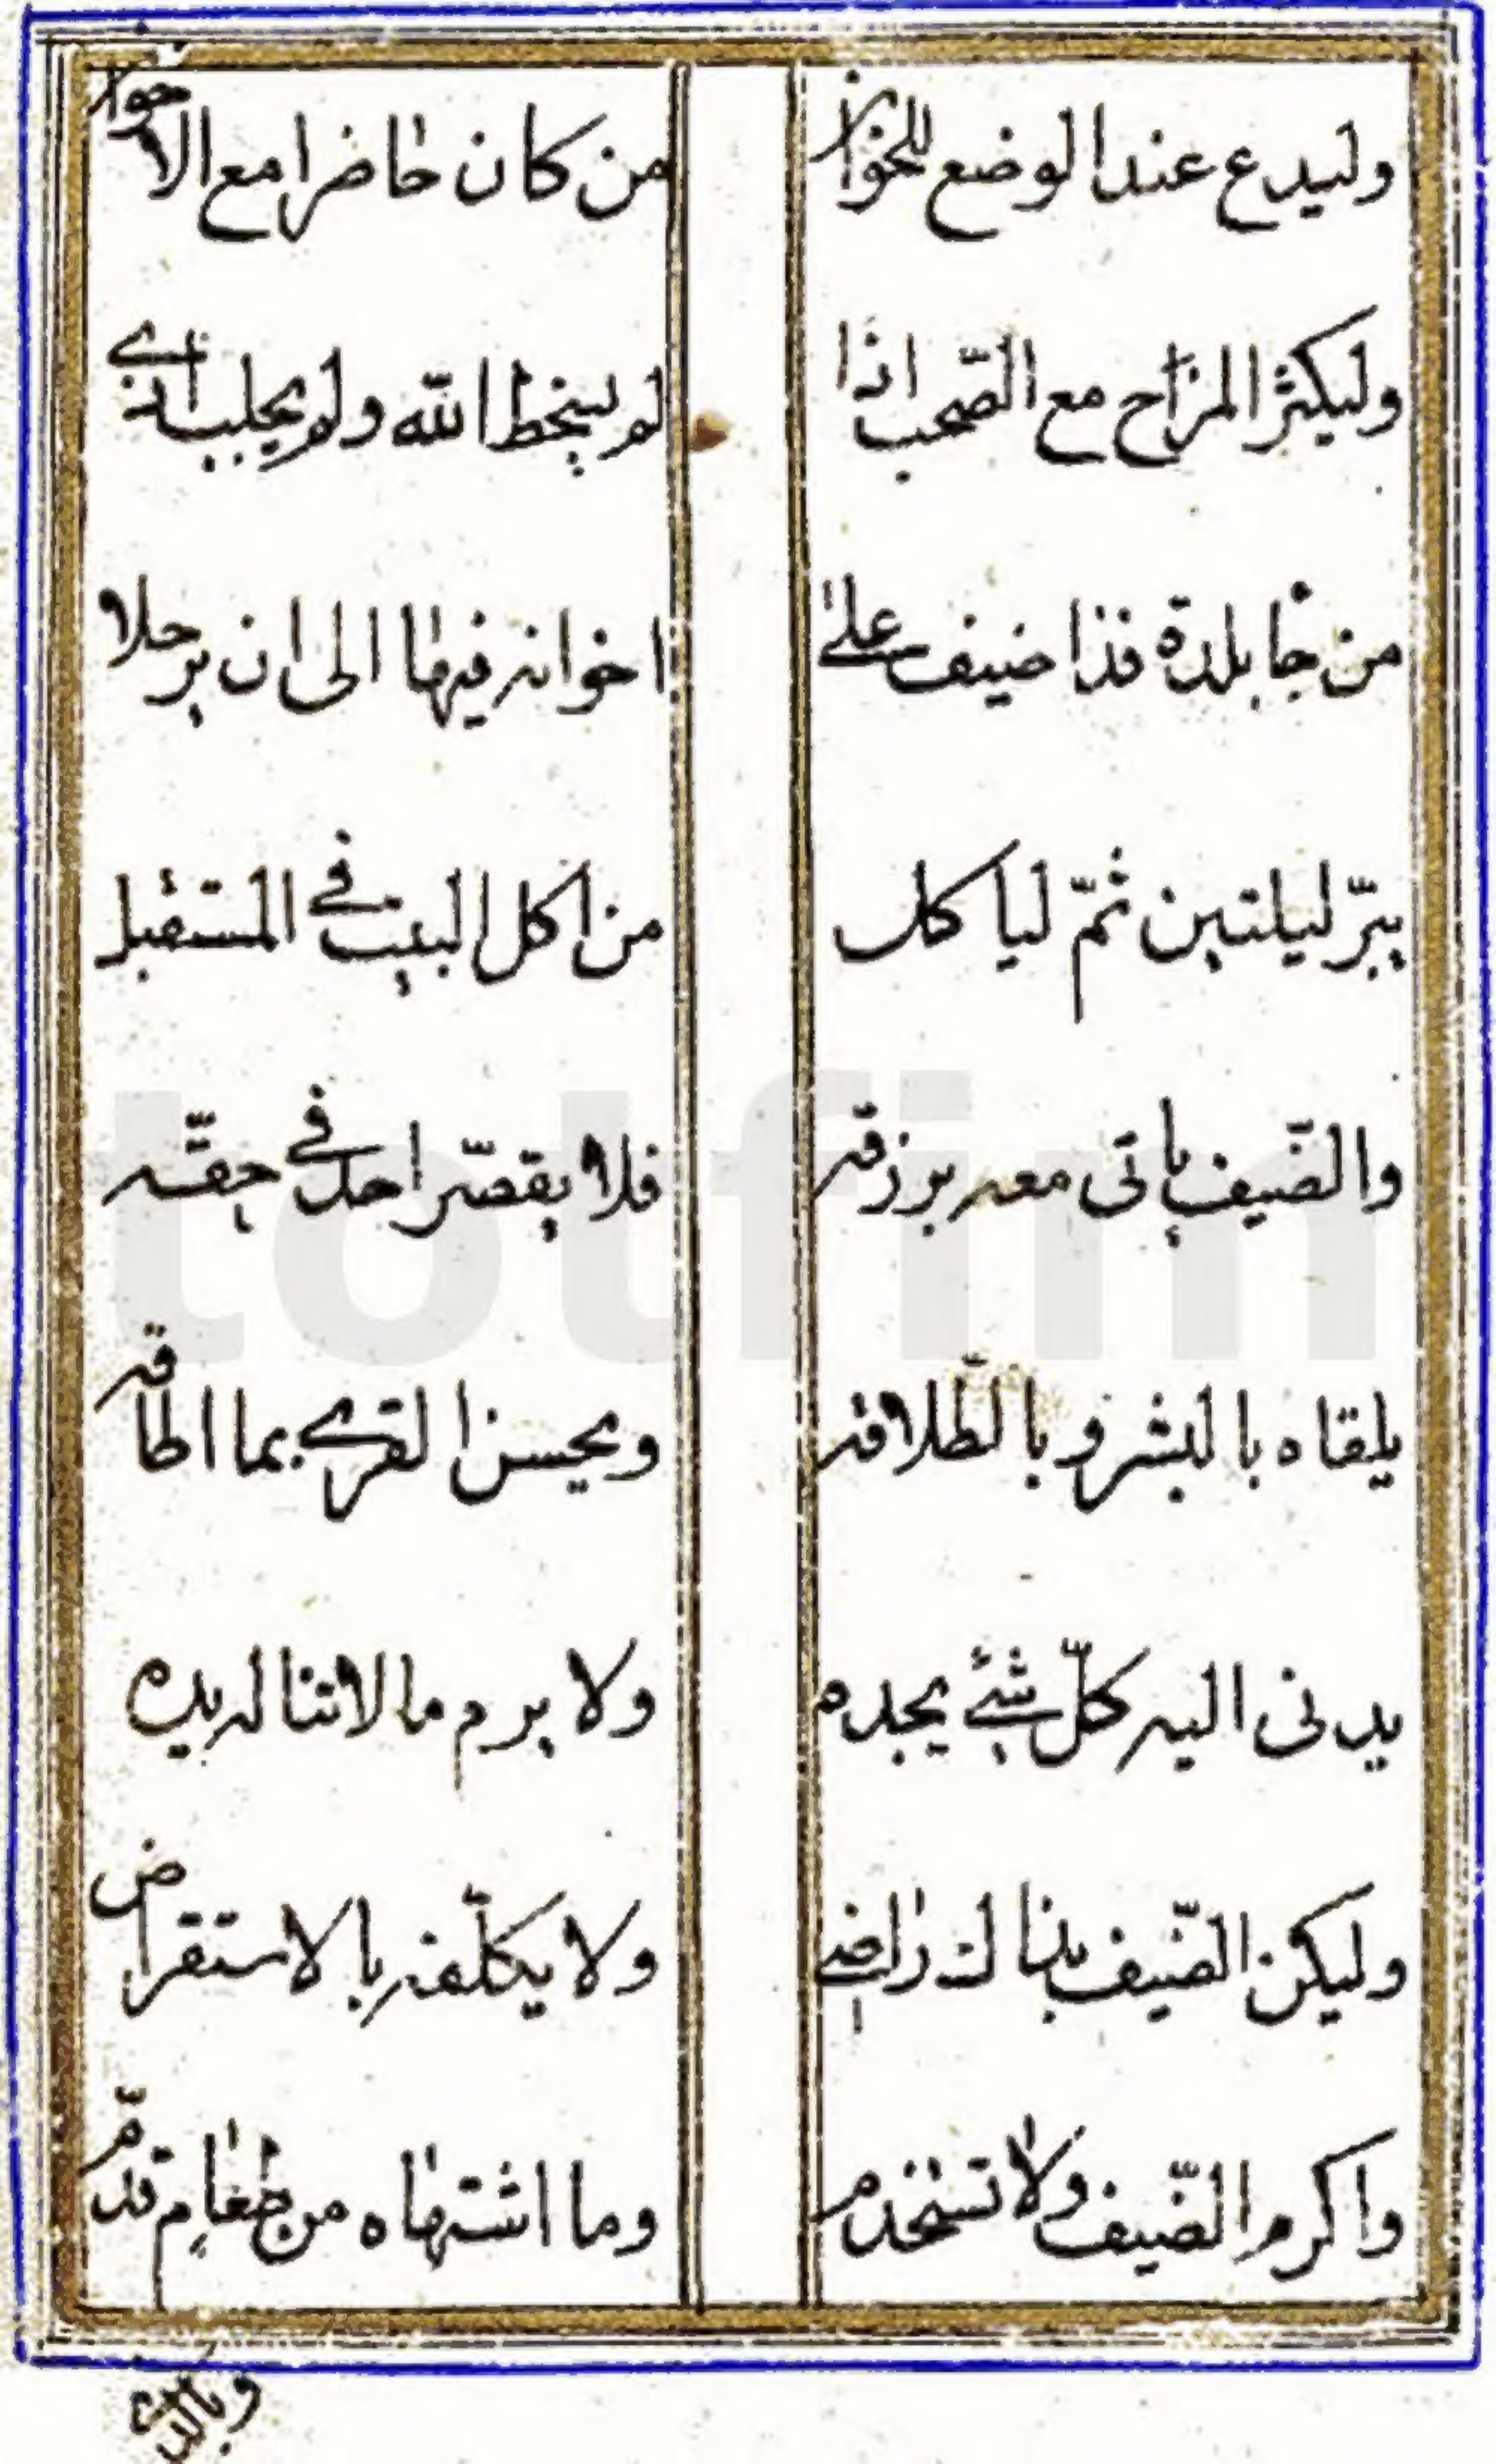 وليدع عند الوضع للخوان من كان حاضرا مع الاخوان
وليكثر المزاح مع الصّحب اذا لم يسخط الله ولم يجلب اذى
من جا بلدة فذا ضيف على اخوانه فيها الى ان يرحلا
يبرّ ليلتين ثمّ لياكل من اكل البيت في المستقبل
والضّيف ياتى معه برزقه فلا يقصّر احد في حقّه
يلقاه بالبشر وبالطّلاقه ويحسن القرى بما اطاقه
يدنى اليه كلّ شئ يجده ولا يرم ما لا تناله يده
وليكن الضّيف بذاك راضى ولا يكلّفه بالاستقراض
واكرم الضّيف ولا تستخدم وما اشتهاه من طعام قدّم
وبالذى
totfim